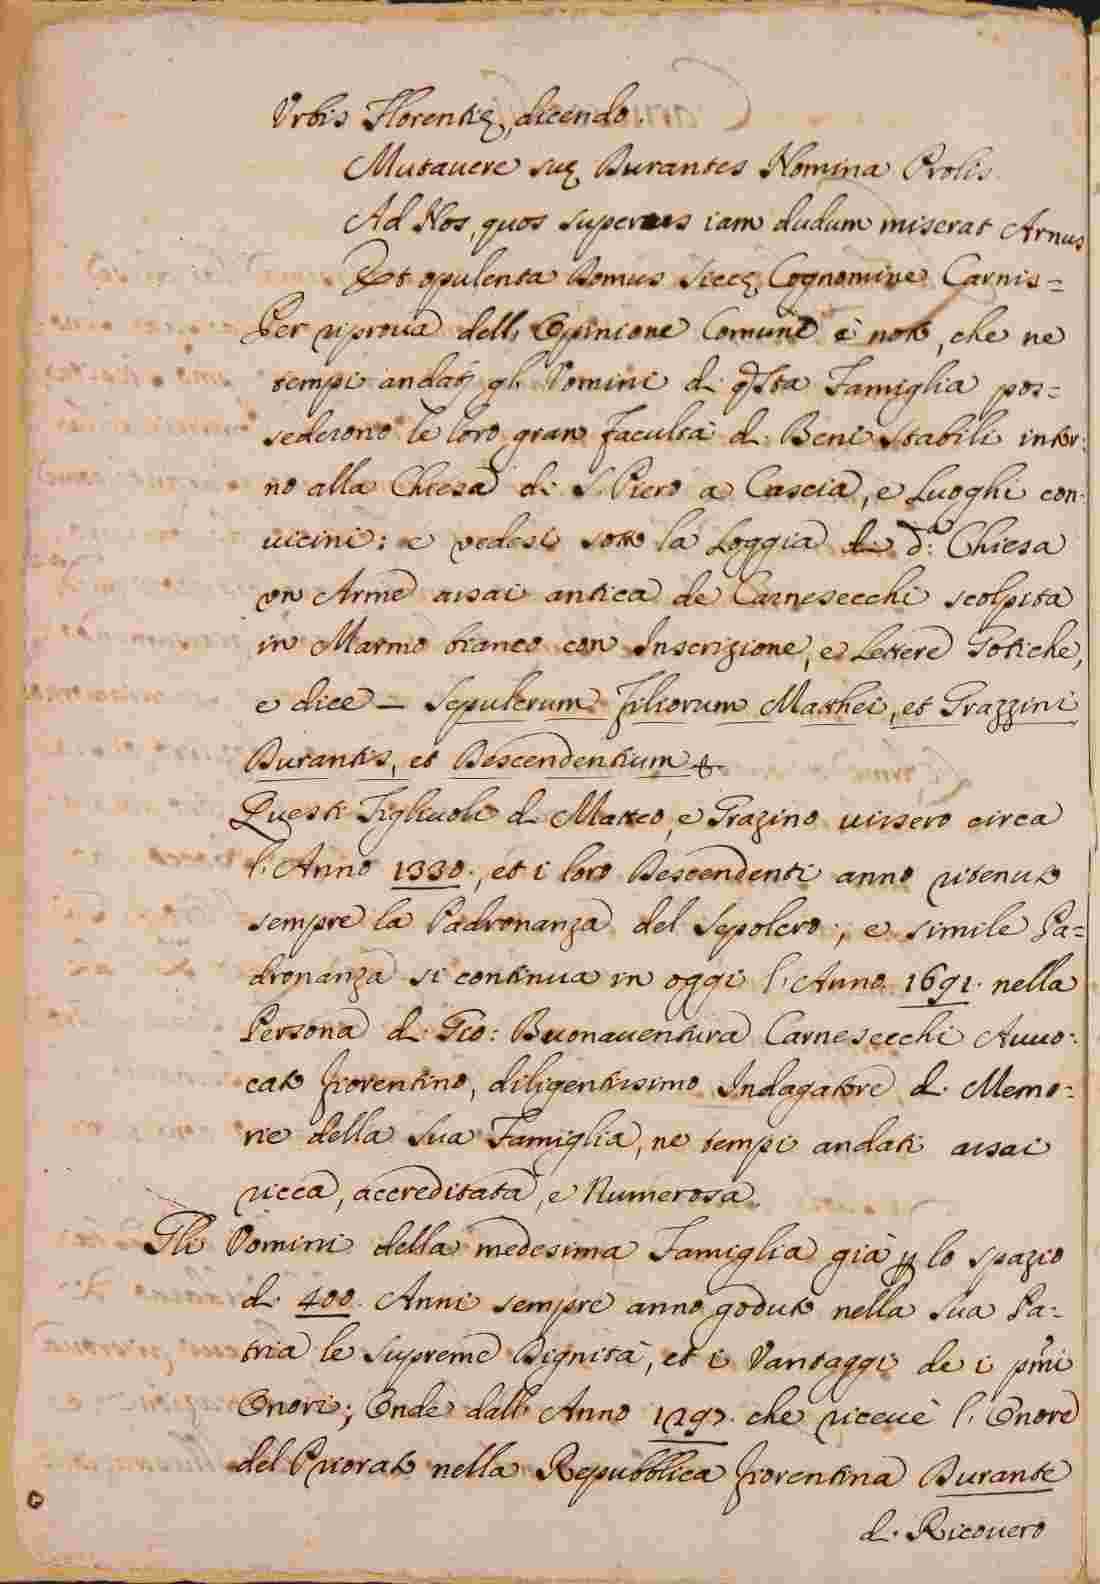 Urbis Florentię, dicendo.
Mutauere suę Durantes Nomina Prolis
Ad Nos, quos superus iam dudum miserat Arnus
Et opulenta Domus Siccę Cognomine Carnis=
Per riproua dell' Opinione Comune è noto, che ne
tempi andati gl' Vomini di qsta Famiglia pos=
sederono le loro gran facultà di Beni Stabili intor:
no alla Chiesa di S. Piero a Cascia, e Luoghi con-
uicini: e vedesi sotto la Loggia di d.a Chiesa
vn Arme assai antica de Carnesecchi scolpita
in Marmo bianco con Inscrizione, e Lettere Gotiche,
e dice — Sepulcrum filiorum Matthei, et Grazzini
Durantis, et Descendentium
Questi Figliuoli di Matteo, e Grazino uissero circa
l'Anno 1330., et i loro Descendenti anno ritenuto
sempre la Padronanza del Sepolcro, e simile Pa=
dronanza si continua in oggi l'Anno 1691. nella
Persona di Gio: Buonauentura Carnesecchi Auuo:
cato fiorentino, diligentissimo Indagatore di Memo-
rie della sua Famiglia, ne tempi andati assai
ricca, accreditata, e Numerosa.
Gli Vomini della medesima Famiglia già p lo spazio
di 400. Anni sempre anno goduto nella sua Pa=
tria le supreme Dignità, et i Vantaggi de i pmi
Onori; Onde dall' Anno 1297. che riceuè l'Onore
del Priorato nella Repubblica fiorentina Durante
di Ricouero